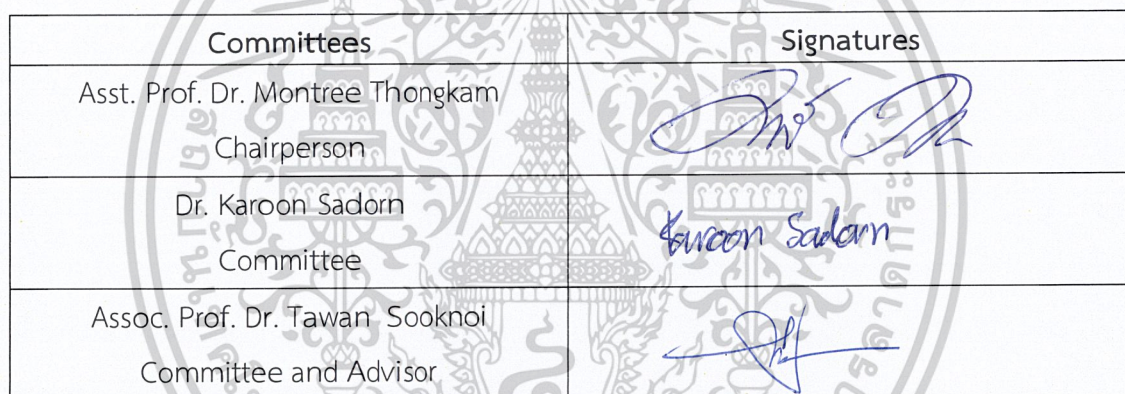 Committees Signatures
Asst. Prof. Dr. Montree Thongkam
Chairperson
Dr. Karoon Sadorn
Committee
Karoon Sadorn
Assoc. Prof. Dr. Tawan Sooknoi
Committee and Advisor